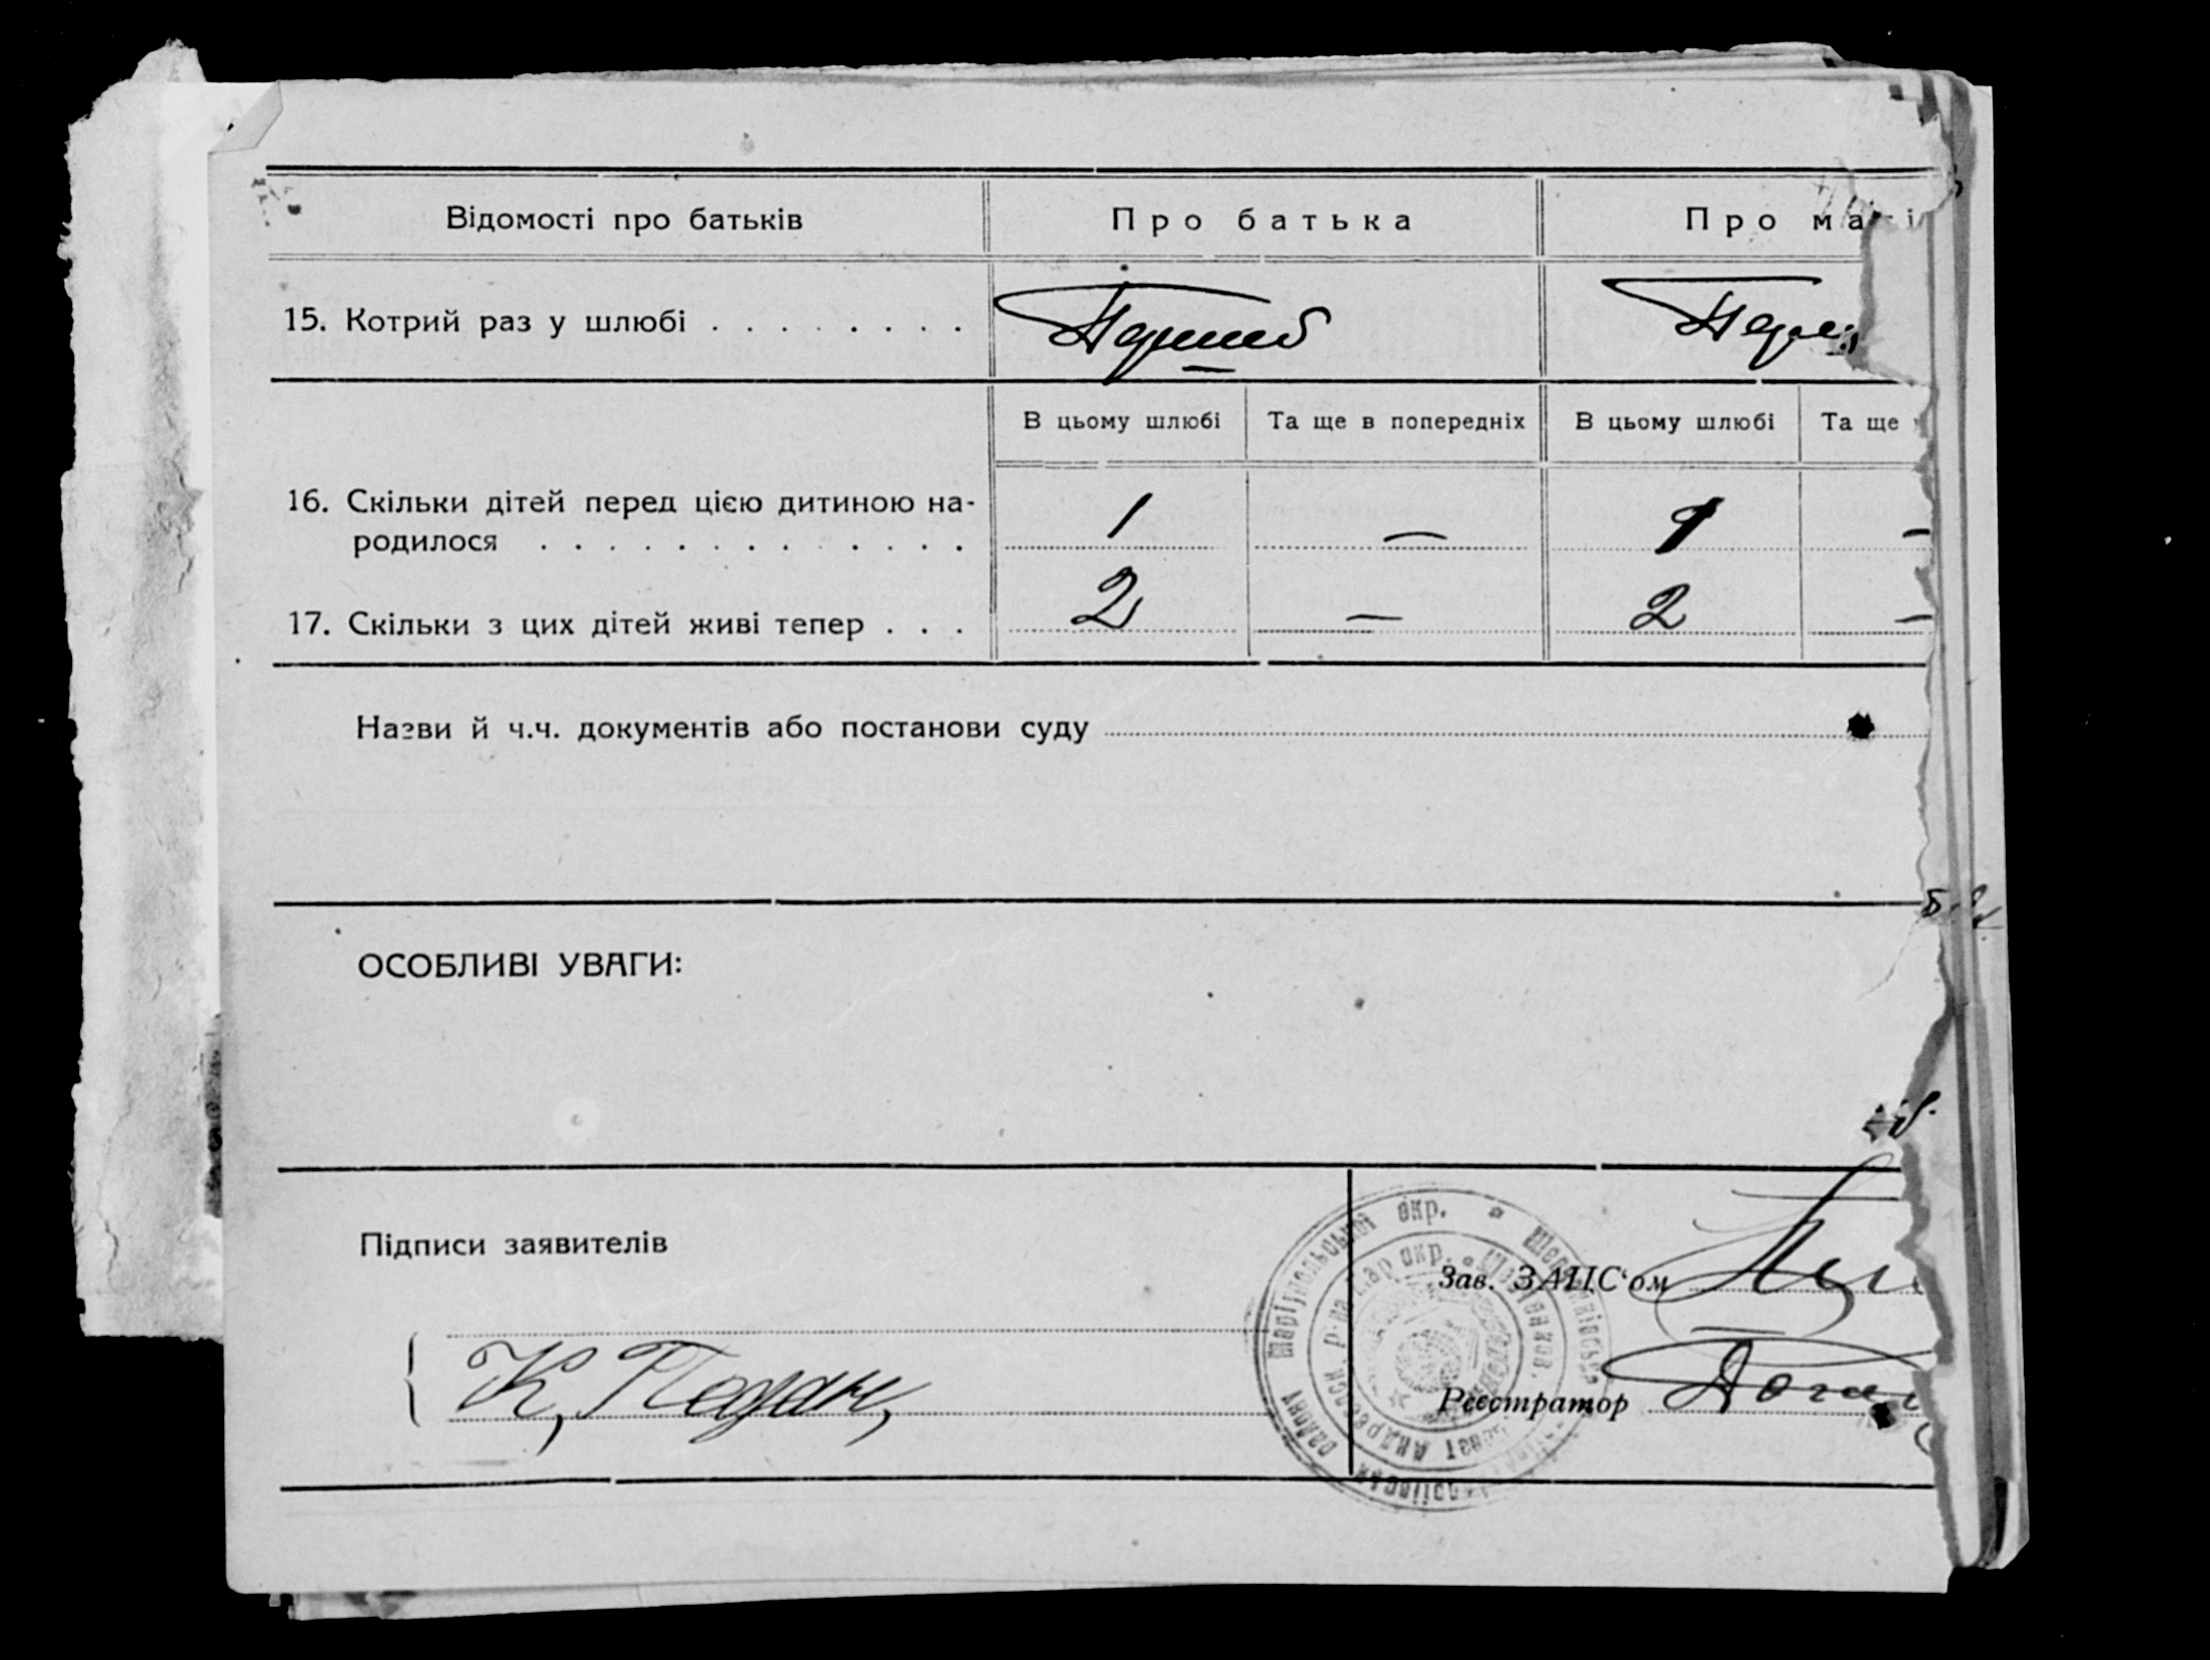 Відомості про батьків Про батька Про ма
15. Котрий раз у шлюбі . . . . . . . . Перший Перш
В цьому шлюбі Та ще в попередніх В цьому шлюбі Та ще
16. Скільки дітей перед цією дитиною на-
родилося . . . . . . . . . . . . . 1 — 1 —
17. Скільки з цих дітей живі тепер . . . 2 — 2 —
Назви й ч.ч. документів або постанови суду
ОСОБЛИВІ УВАГИ:
Підписи заявителів
Зав. ЗАПС'ом
К,
Реєстратор
окр.